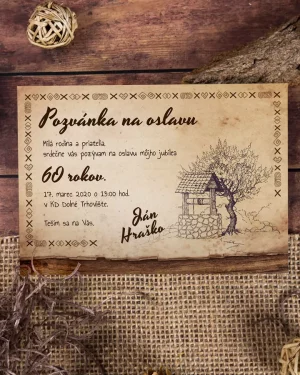 Pozvánka na oslavu
Milá rodina a priatelia,
srdečne Vás pozývam na oslavu môjho jubilea
60 rokov.
17. marec 2020 o 13:00 hod.
v KD Dolné Trhovište.
Teším sa na Vás,
Ján
Hraško